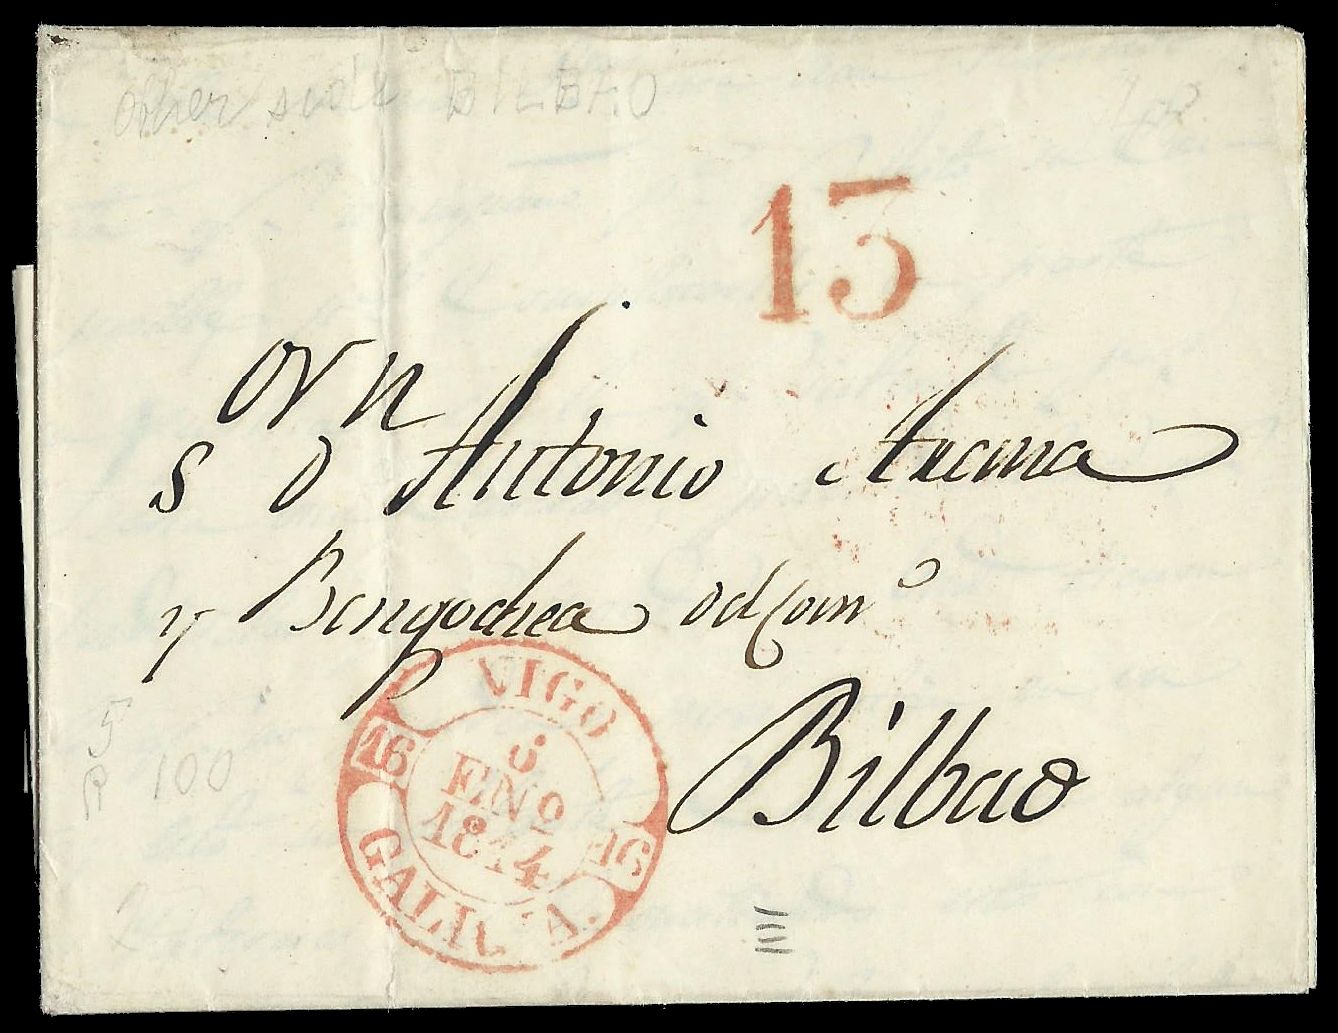 other side BILBAO
13
orn
S D Antonio Arana
y Bengochea del Comº
Bilbao
VIGO
16
6
ENº
1844
16
GALICIA.
5
R 100